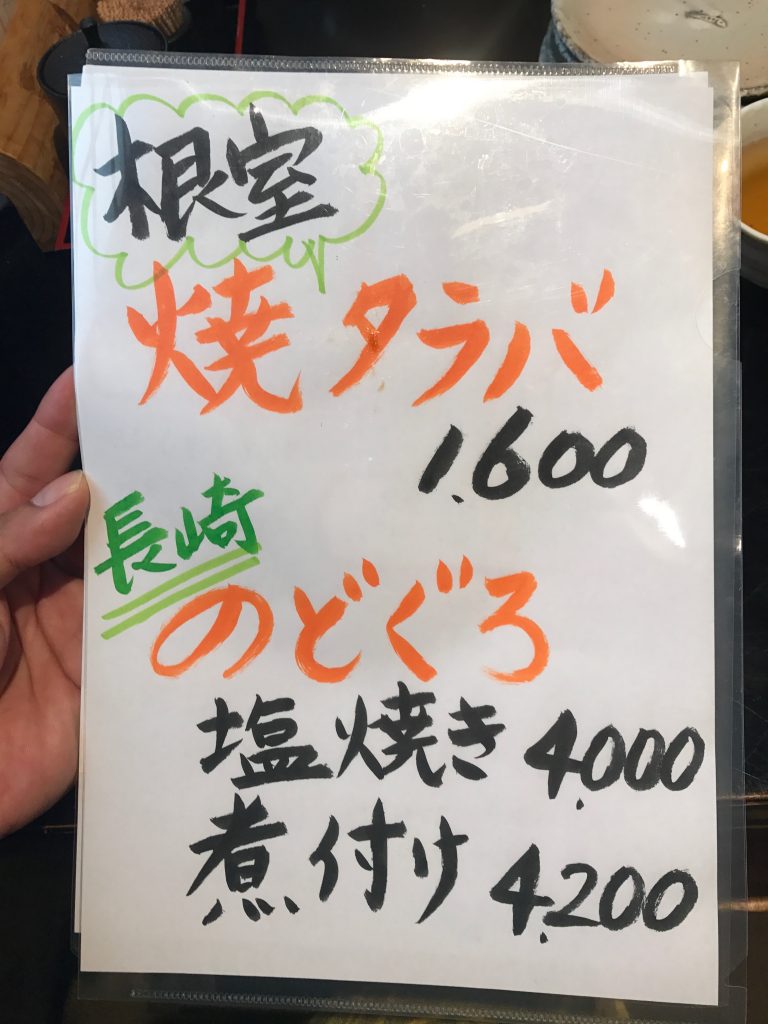 根室
焼タラバ
1,600
長崎
のどぐろ
塩焼き 4,000
煮付け 4,200